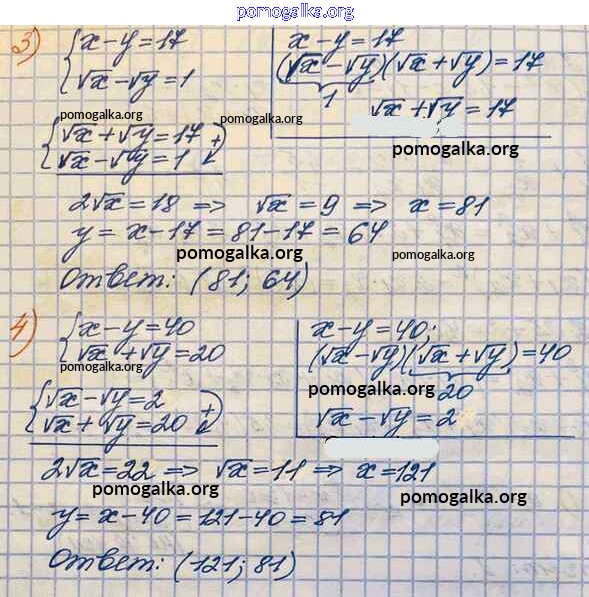 pomogalka.org
3) { x-y=17
√x-√y=1
x-y=17
(√x-√y)(√x+√y)=17
1
√x+√y=17
pomogalka.org
pomogalka.org
{ √x+√y=17
√x-√y=1 +
pomogalka.org
2√x=18 => √x=9 => x=81
y=x-17=81-17=64
pomogalka.org
pomogalka.org
Ответ: (81; 64)
4) { x-y=40
√x+√y=20
pomogalka.org
x-y=40;
(√x-√y)(√x+√y)=40
pomogalka.org
20
√x-√y=2
{ √x-√y=2
√x+√y=20 +
2√x=22 => √x=11 => x=121
pomogalka.org
pomogalka.org
y=x-40=121-40=81
Ответ: (121; 81)